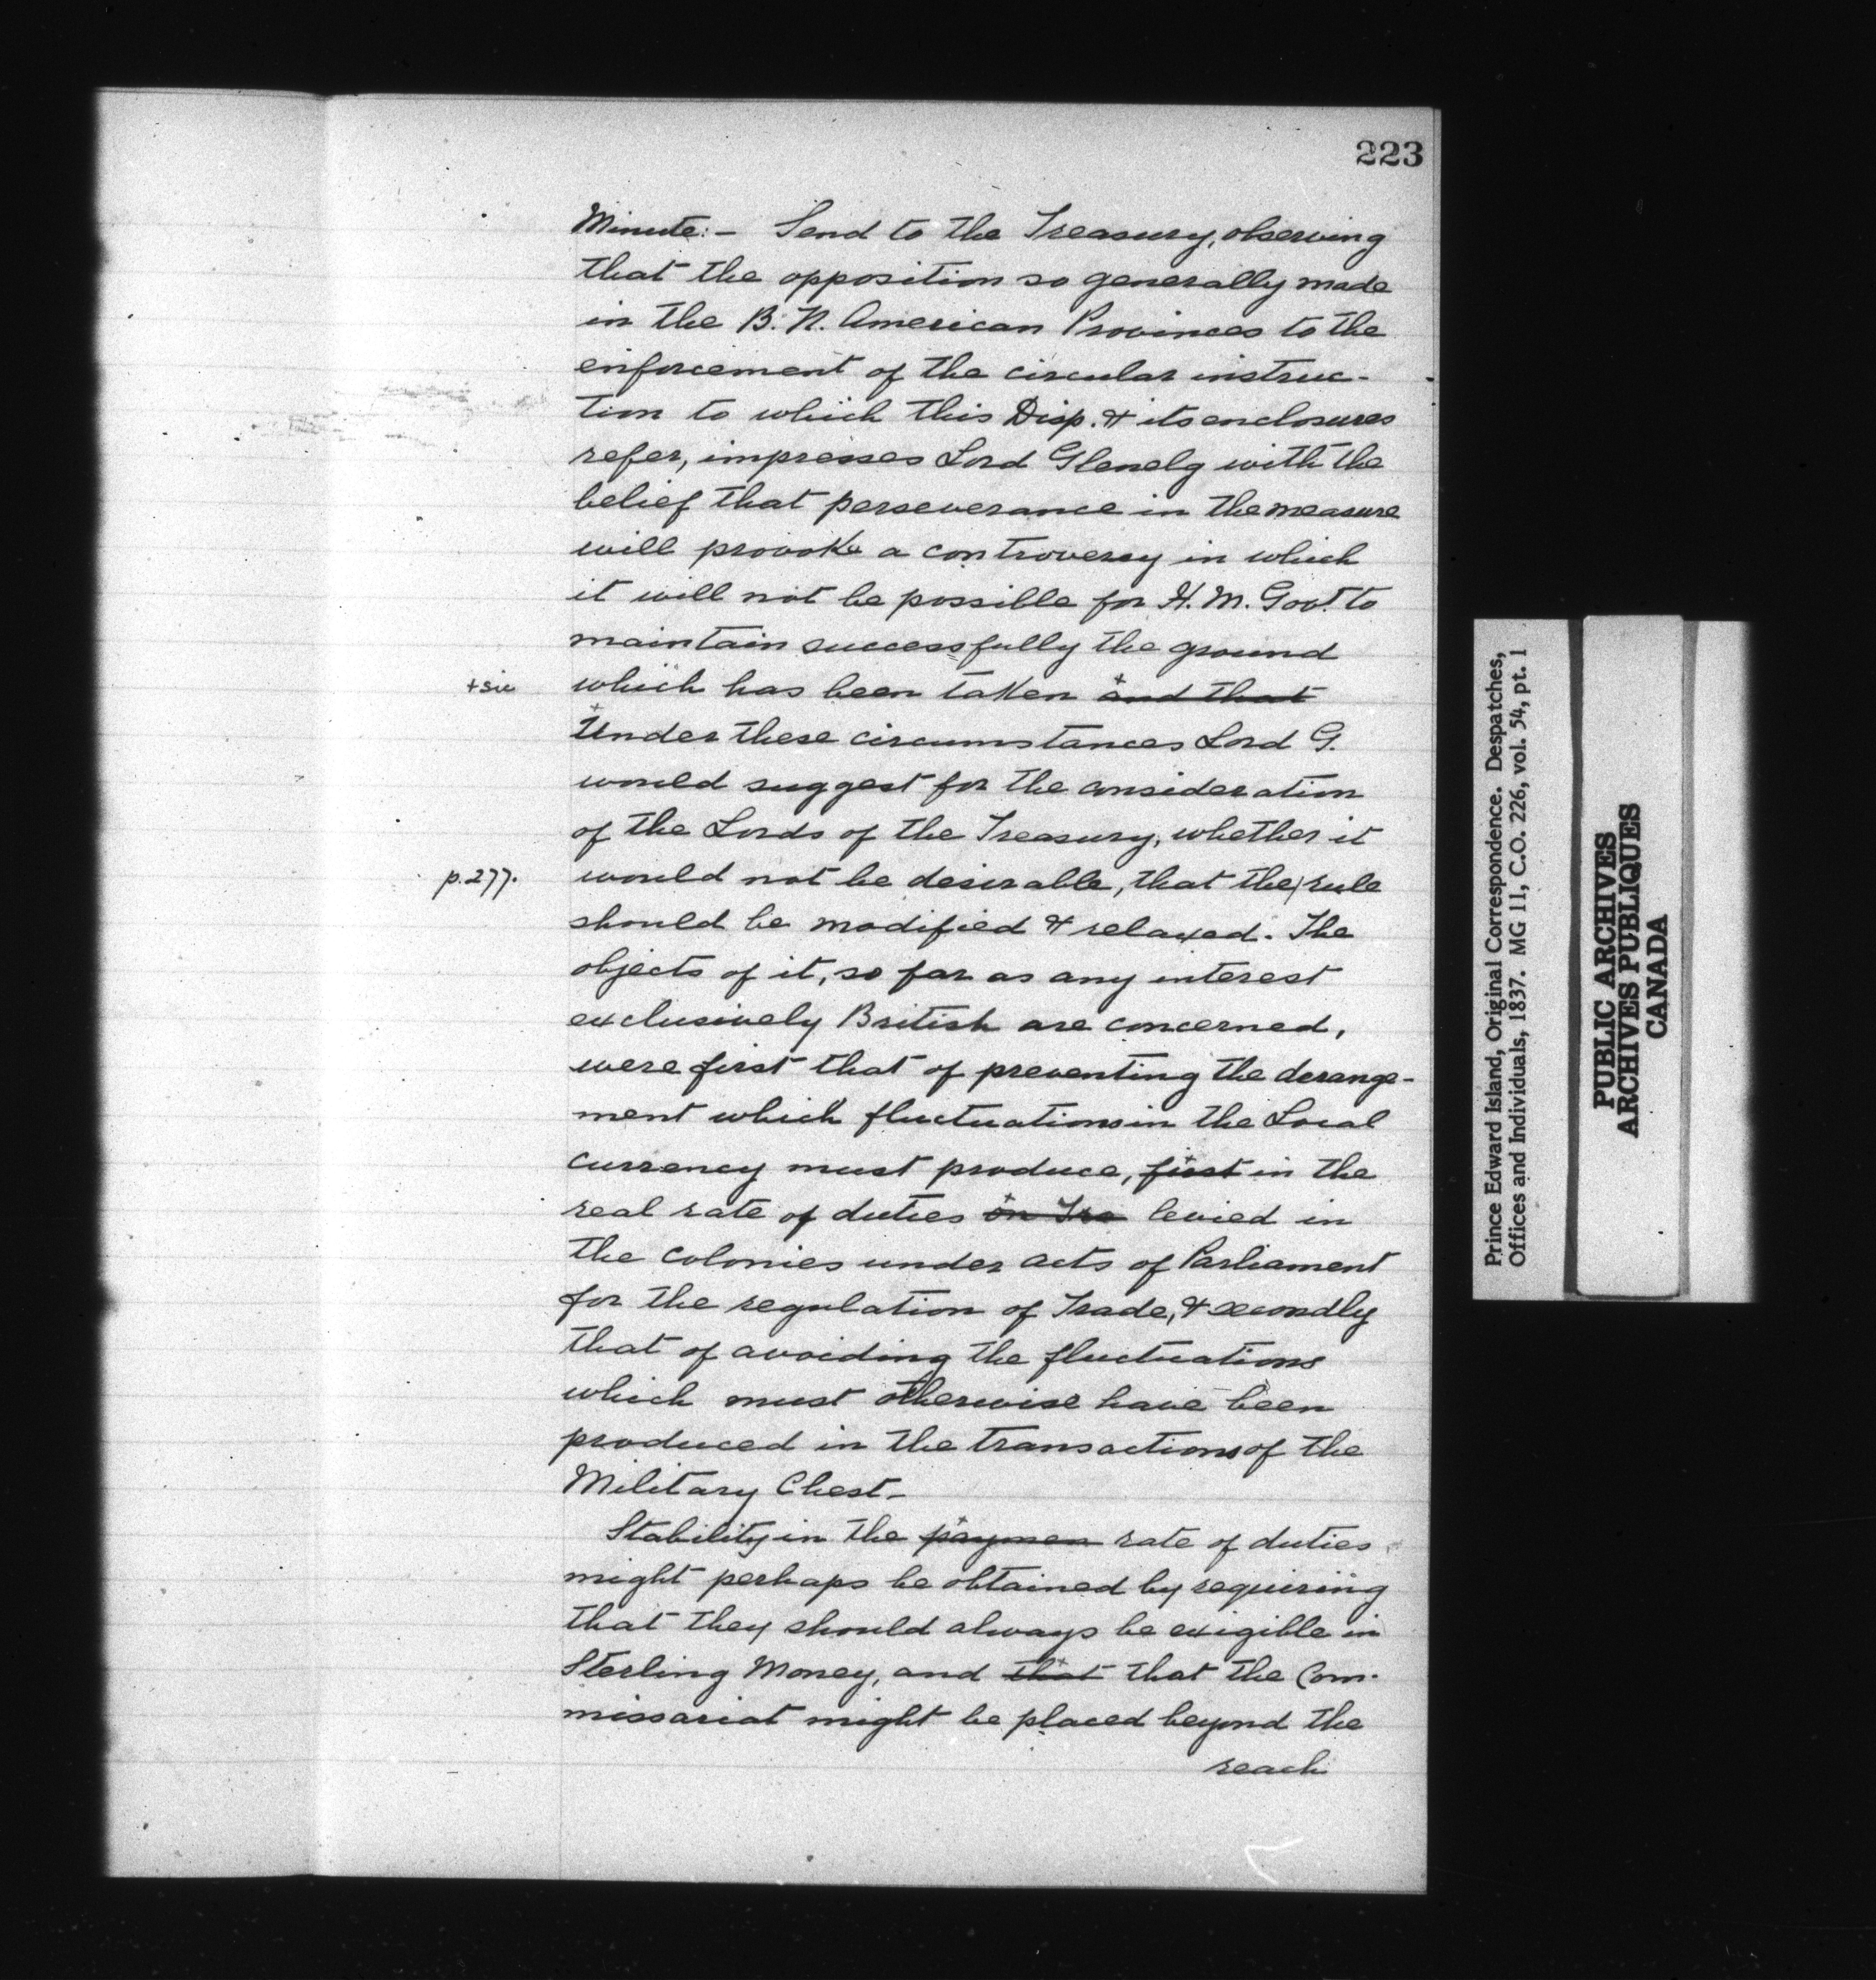 223
Minute:- Send to the Treasury, observing
that the opposition so generally made
in the B. N. American Provinces to the
enforcement of the circular instruc-
tion to which this Disp. & its enclosures
refer, impresses Lord Glenelg with the
belief that perseverance in the measure
will provoke a controversy in which
it will not be possible for H. M. Govt. to
maintain successfully the ground
+sic which has been taken + and that
+ Under these circumstances Lord G.
would suggest for the consideration
of the Lords of the Treasury, whether it
p.277. would not be desirable, that the / rule
should be modified & relaxed. The
objects of it, so far as any interest
exclusively British are concerned,
were first that of preventing the derange-
ment which fluctuations in the Local
currency must produce, first in the
real rate of duties on Tra levied in
the colonies under acts of Parliament
for the regulation of Trade, & secondly
that of avoiding the fluctuations
which must otherwise have been
produced in the transactions of the
Military Chest-
Stability in the paymen rate of duties
might perhaps be obtained by requiring
that they should always be exigible in
Sterling Money, and that that the Com-
missariat might be placed beyond the
reach
Prince Edward Island, Original Correspondence. Despatches,
Offices and Individuals, 1837. MG 11, C.O. 226, vol. 54, pt. 1
PUBLIC ARCHIVES
ARCHIVES PUBLIQUES
CANADA